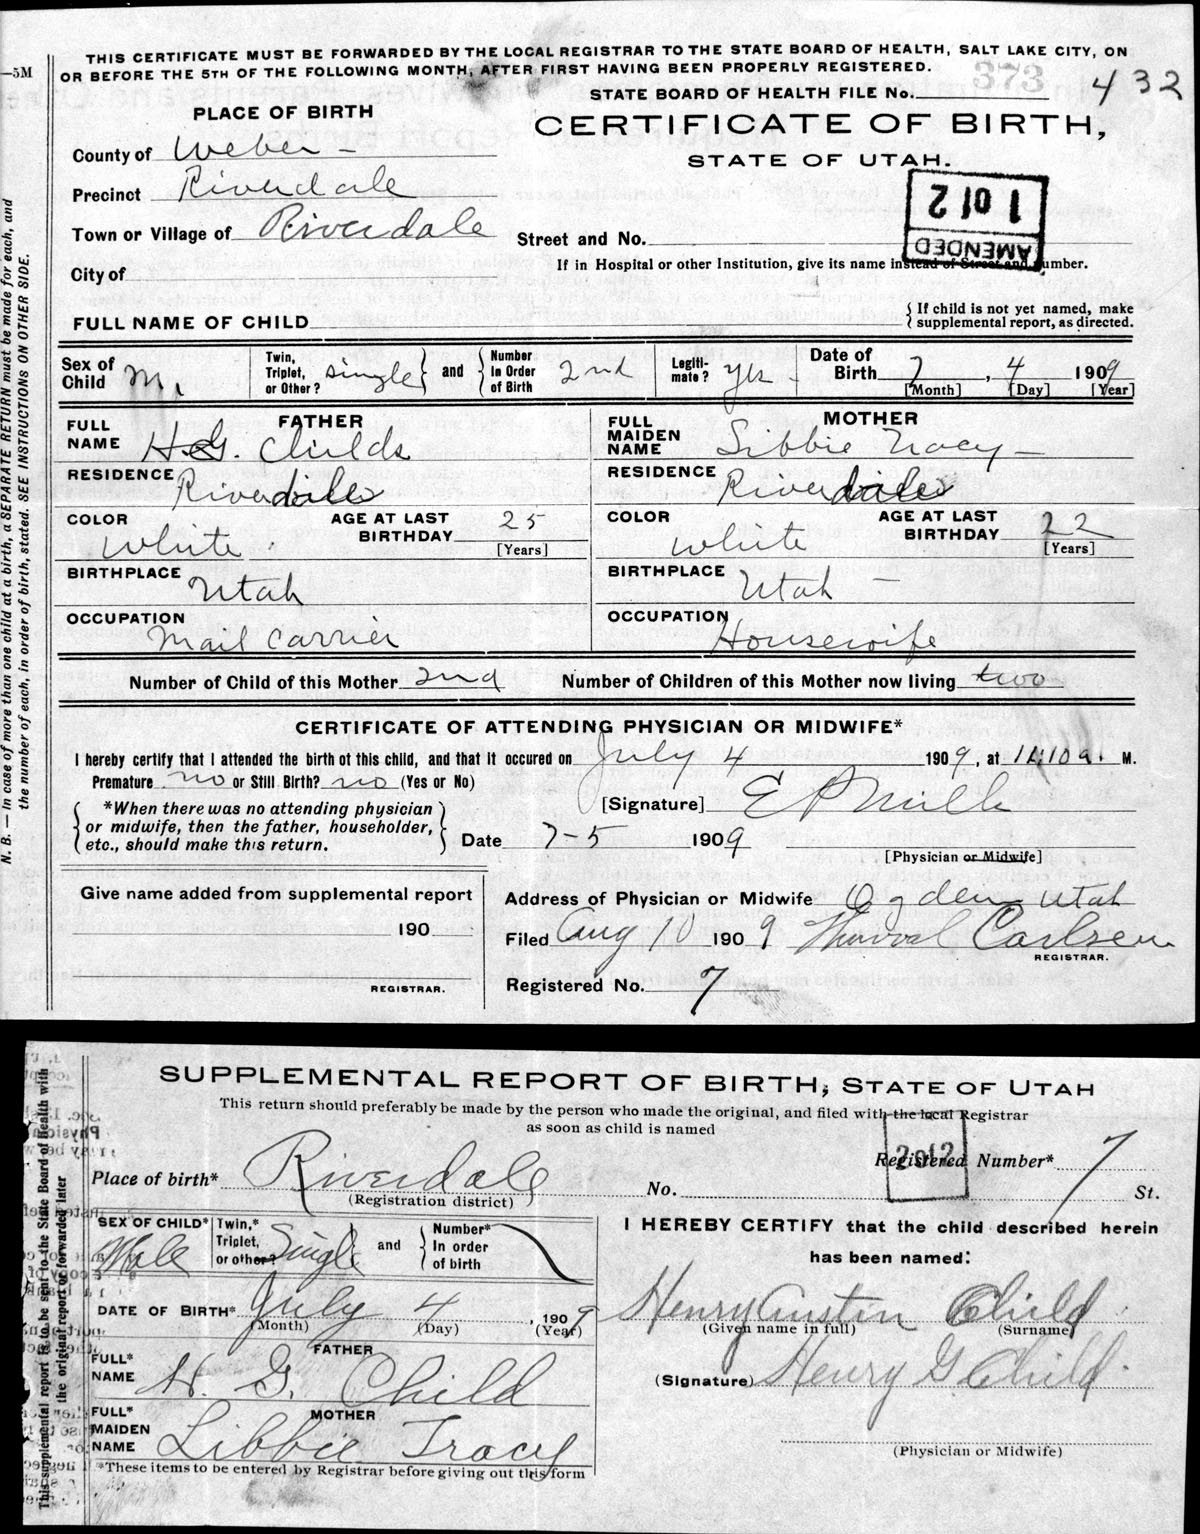 THIS CERTIFICATE MUST BE FORWARDED BY THE LOCAL REGISTRAR TO THE STATE BOARD OF HEALTH, SALT LAKE CITY, ON
OR BEFORE THE 5TH OF THE FOLLOWING MONTH, AFTER FIRST HAVING BEEN PROPERLY REGISTERED.
—5M
STATE BOARD OF HEALTH FILE No. 373 432
PLACE OF BIRTH
CERTIFICATE OF BIRTH,
STATE OF UTAH.
County of Weber —
Precinct Riverdale
Town or Village of Riverdale
City of
AMENDED
1 of 2
Street and No.
If in Hospital or other Institution, give its name instead of Street and number.
FULL NAME OF CHILD
If child is not yet named, make
supplemental report, as directed.
Sex of Child M.
Twin, Triplet, or Other? single and Number In Order of Birth 2nd
Legiti-mate? yes
Date of Birth 7, 4 1909
[Month] [Day] [Year]
FATHER
FULL NAME H.G. Childs
RESIDENCE Riverdale
COLOR White
AGE AT LAST BIRTHDAY 25
[Years]
BIRTHPLACE Utah
OCCUPATION Mail Carrier
MOTHER
FULL MAIDEN NAME Libbie Tracy —
RESIDENCE Riverdale
COLOR White
AGE AT LAST BIRTHDAY 22
[Years]
BIRTHPLACE Utah —
OCCUPATION Housewife
Number of Child of this Mother 2nd Number of Children of this Mother now living two
CERTIFICATE OF ATTENDING PHYSICIAN OR MIDWIFE*
I hereby certify that I attended the birth of this child, and that it occured on July 4 1909, at 11:10 a. M.
Premature no or Still Birth? no (Yes or No)
*When there was no attending physician
or midwife, then the father, householder,
etc., should make this return.
[Signature] E P Mills
Date 7-5 1909
[Physician or Midwife]
Give name added from supplemental report
190
REGISTRAR.
Address of Physician or Midwife Ogden Utah
Filed Aug 10 1909 Carlsen
REGISTRAR.
Registered No. 7
N. B. — In case of more than one child at a birth, a SEPARATE RETURN must be made for each, and
the number of each, in order of birth, stated. SEE INSTRUCTIONS ON OTHER SIDE.
SUPPLEMENTAL REPORT OF BIRTH, STATE OF UTAH
This return should preferably be made by the person who made the original, and filed with the local Registrar
as soon as child is named
2 of 2
Place of birth* Riverdale
(Registration district)
Registered Number* 7
No. St.
SEX OF CHILD* Male
Twin,* Triplet, or other? Single and Number* In order of birth
DATE OF BIRTH* July 4, 1909
(Month) (Day) (Year)
FATHER
FULL* NAME H. G. Child
MOTHER
FULL* MAIDEN NAME Libbie Tracy
*These items to be entered by Registrar before giving out this form
I HEREBY CERTIFY that the child described herein
has been named:
Henry Austin Child
(Given name in full) (Surname)
(Signature) Henry G Child
(Physician or Midwife)
This supplemental report is to be sent to the State Board of Health with
the original report or forwarded later